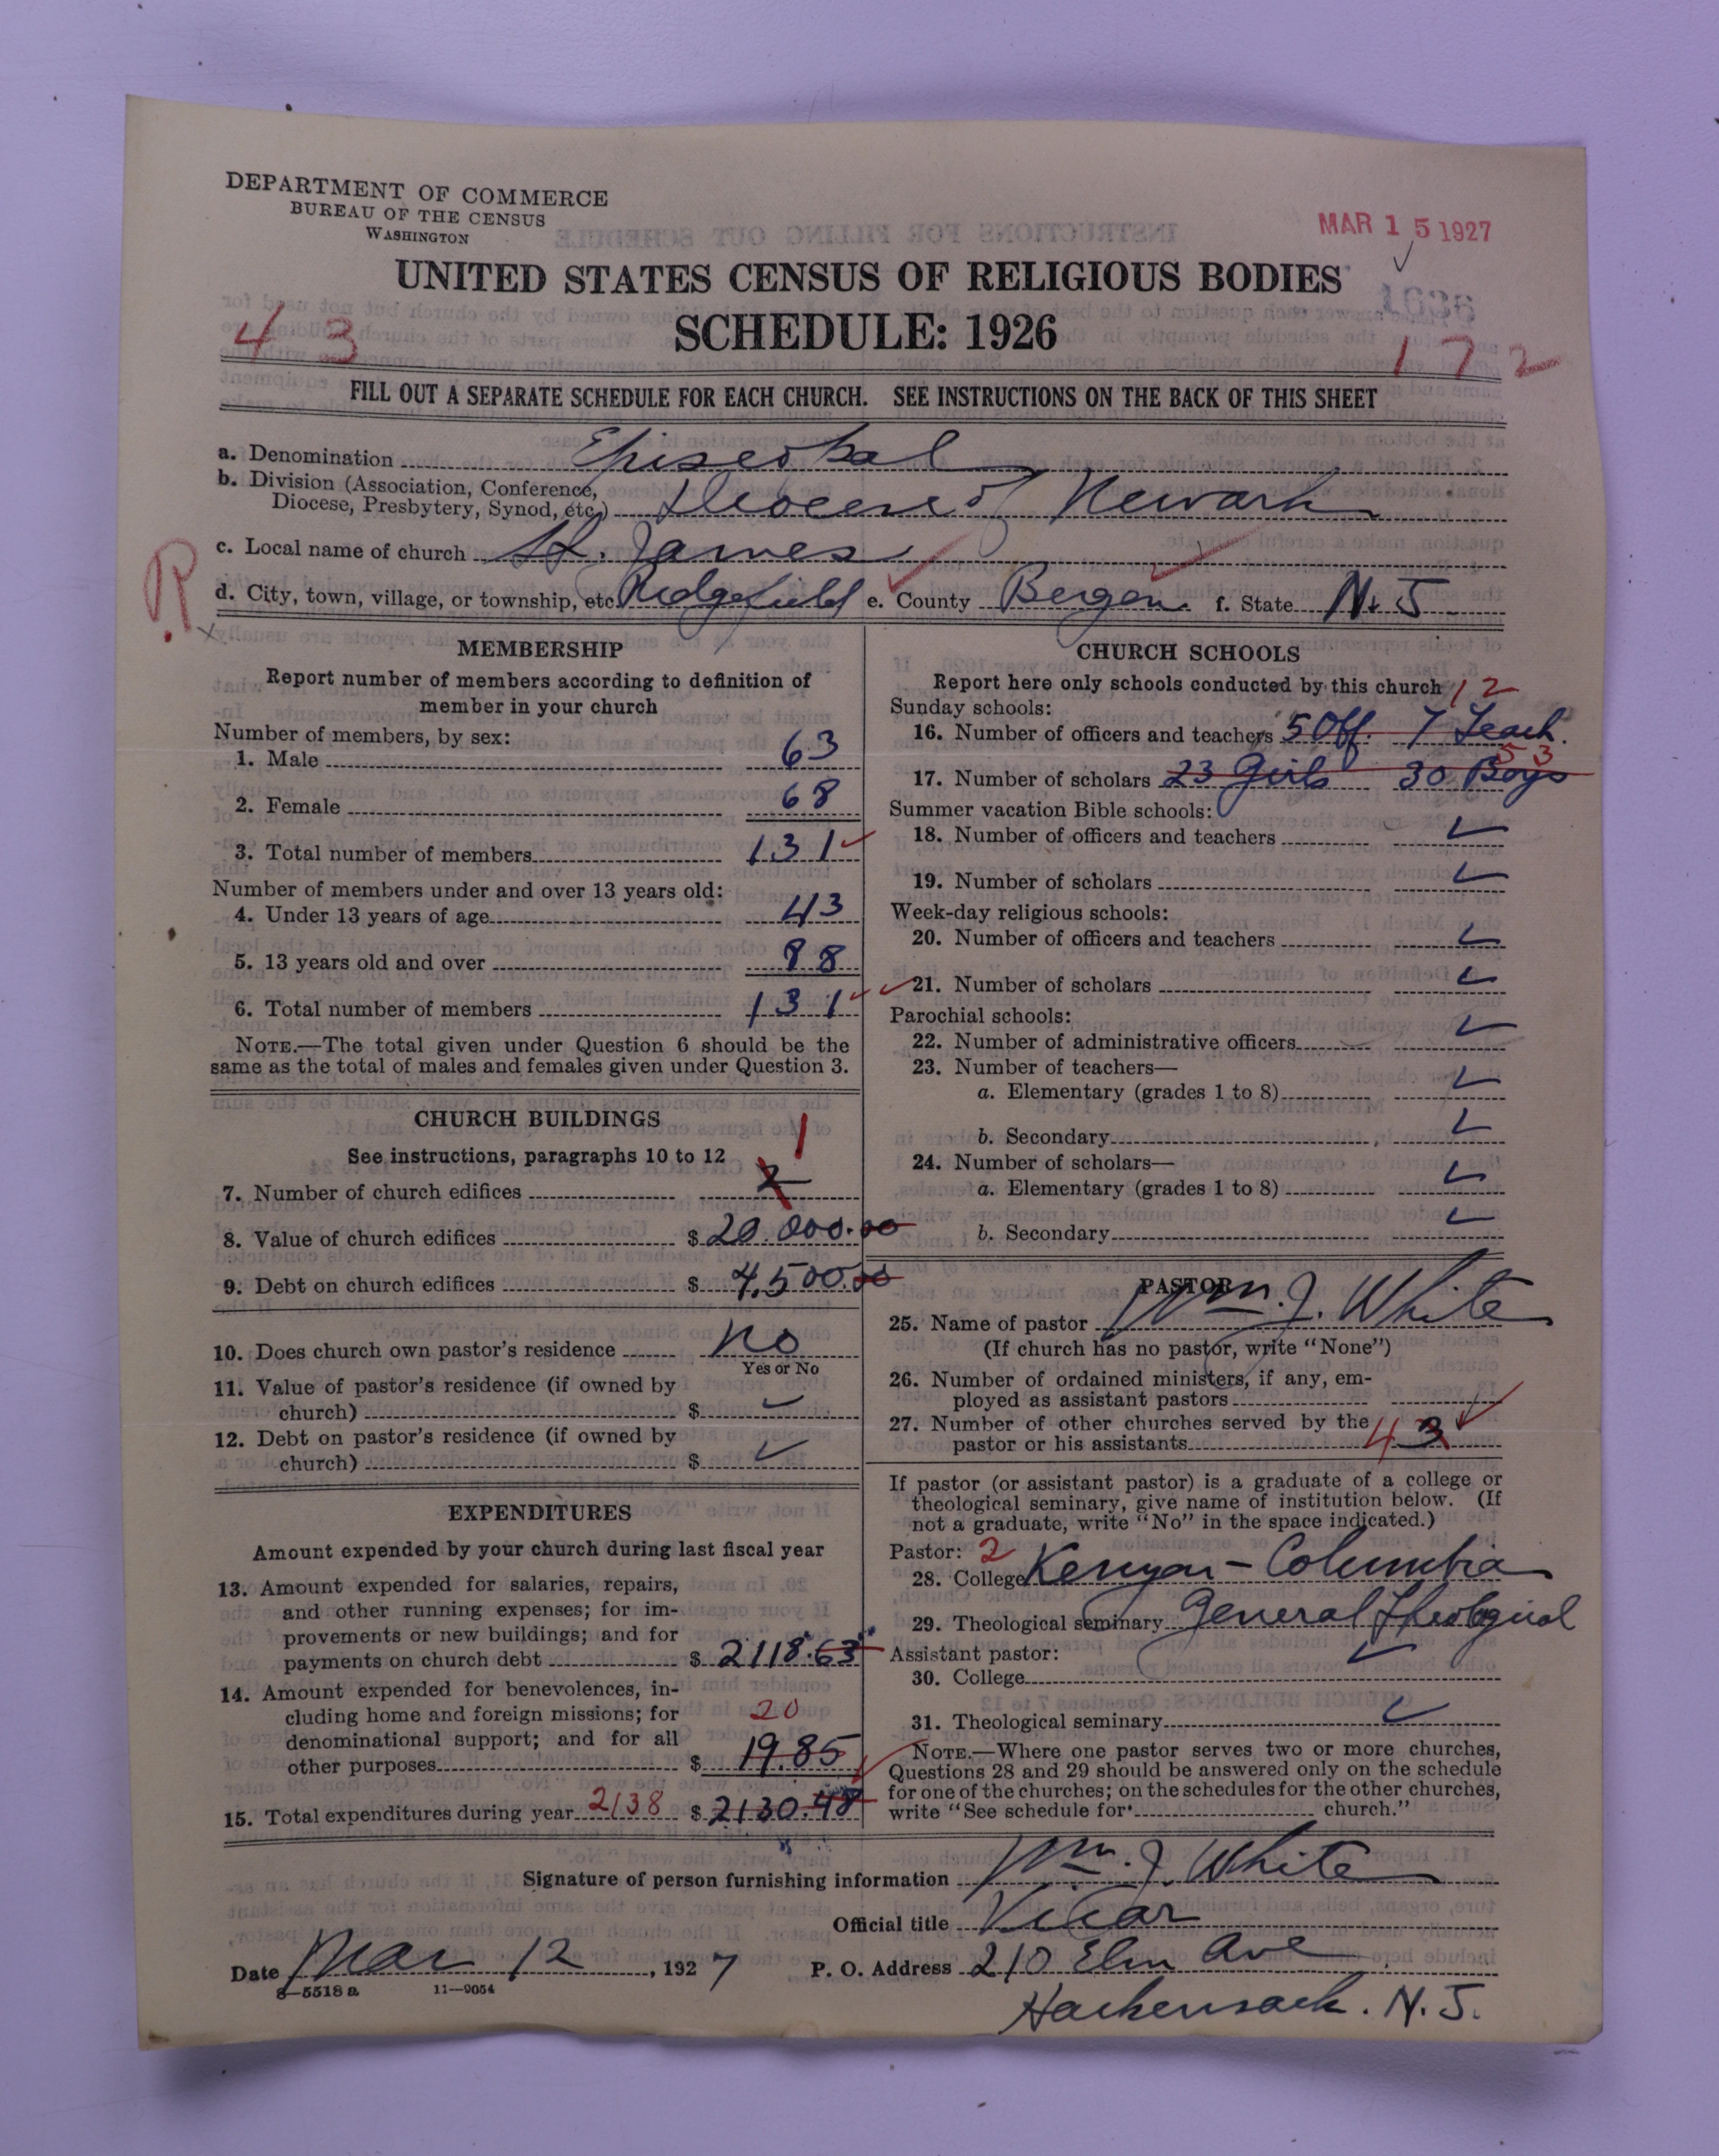 DEPARTMENT OF COMMERCE
BUREAU OF THE CENSUS
WASHINGTON
MAR 15 1927
UNITED STATES CENSUS OF RELIGIOUS BODIES
SCHEDULE: 1926
43
172
FILL OUT A SEPARATE SCHEDULE FOR EACH CHURCH. SEE INSTRUCTIONS ON THE BACK OF THIS SHEET
a. Denomination Episcopal
b. Division (Association, Conference, Diocese, Presbytery, Synod, etc.) Diocese of Newark
c. Local name of church St. James
R
d. City, town, village, or township, etc. Ridgefield e. County Bergen. f. State N. J
MEMBERSHIP
Report number of members according to definition of
member in your church
Number of members, by sex:
1. Male 63
2. Female 68
3. Total number of members 131
Number of members under and over 13 years old:
4. Under 13 years of age 43
5. 13 years old and over 88
6. Total number of members 131
NOTE.—The total given under Question 6 should be the
same as the total of males and females given under Question 3.
CHURCH BUILDINGS
See instructions, paragraphs 10 to 12
1
7. Number of church edifices 2
8. Value of church edifices $ 20.000.00
9. Debt on church edifices $ 4,500.00
10. Does church own pastor's residence No
Yes or No
11. Value of pastor's residence (if owned by
church) $
12. Debt on pastor's residence (if owned by
church) $
EXPENDITURES
Amount expended by your church during last fiscal year
13. Amount expended for salaries, repairs,
and other running expenses; for im-
provements or new buildings; and for
payments on church debt $ 2118.63
14. Amount expended for benevolences, in-
cluding home and foreign missions; for 20
denominational support; and for all
other purposes $ 19.85
15. Total expenditures during year 2138 $ 2130.48
CHURCH SCHOOLS
Report here only schools conducted by this church 12
Sunday schools:
16. Number of officers and teachers 5 Off. 7 Teach.
53
17. Number of scholars 23 Girls 30 Boys
Summer vacation Bible schools:
18. Number of officers and teachers
19. Number of scholars
Week-day religious schools:
20. Number of officers and teachers
21. Number of scholars
Parochial schools:
22. Number of administrative officers
23. Number of teachers—
a. Elementary (grades 1 to 8)
b. Secondary
24. Number of scholars—
a. Elementary (grades 1 to 8)
b. Secondary
PASTOR
25. Name of pastor Wm. J. White
(If church has no pastor, write "None")
26. Number of ordained ministers, if any, em-
ployed as assistant pastors
27. Number of other churches served by the
pastor or his assistants 4 3
If pastor (or assistant pastor) is a graduate of a college or
theological seminary, give name of institution below. (If
not a graduate, write "No" in the space indicated.)
Pastor: 2
28. College Kenyon - Columbia
29. Theological seminary General Theological
Assistant pastor:
30. College
31. Theological seminary
NOTE.—Where one pastor serves two or more churches,
Questions 28 and 29 should be answered only on the schedule
for one of the churches; on the schedules for the other churches,
write "See schedule for church."
Signature of person furnishing information Wm. J. White
Official title Vicar
Date Mar 12, 1927 P. O. Address 210 Elm Ave
8—5518a 11—9054
Hackensack. N. J.